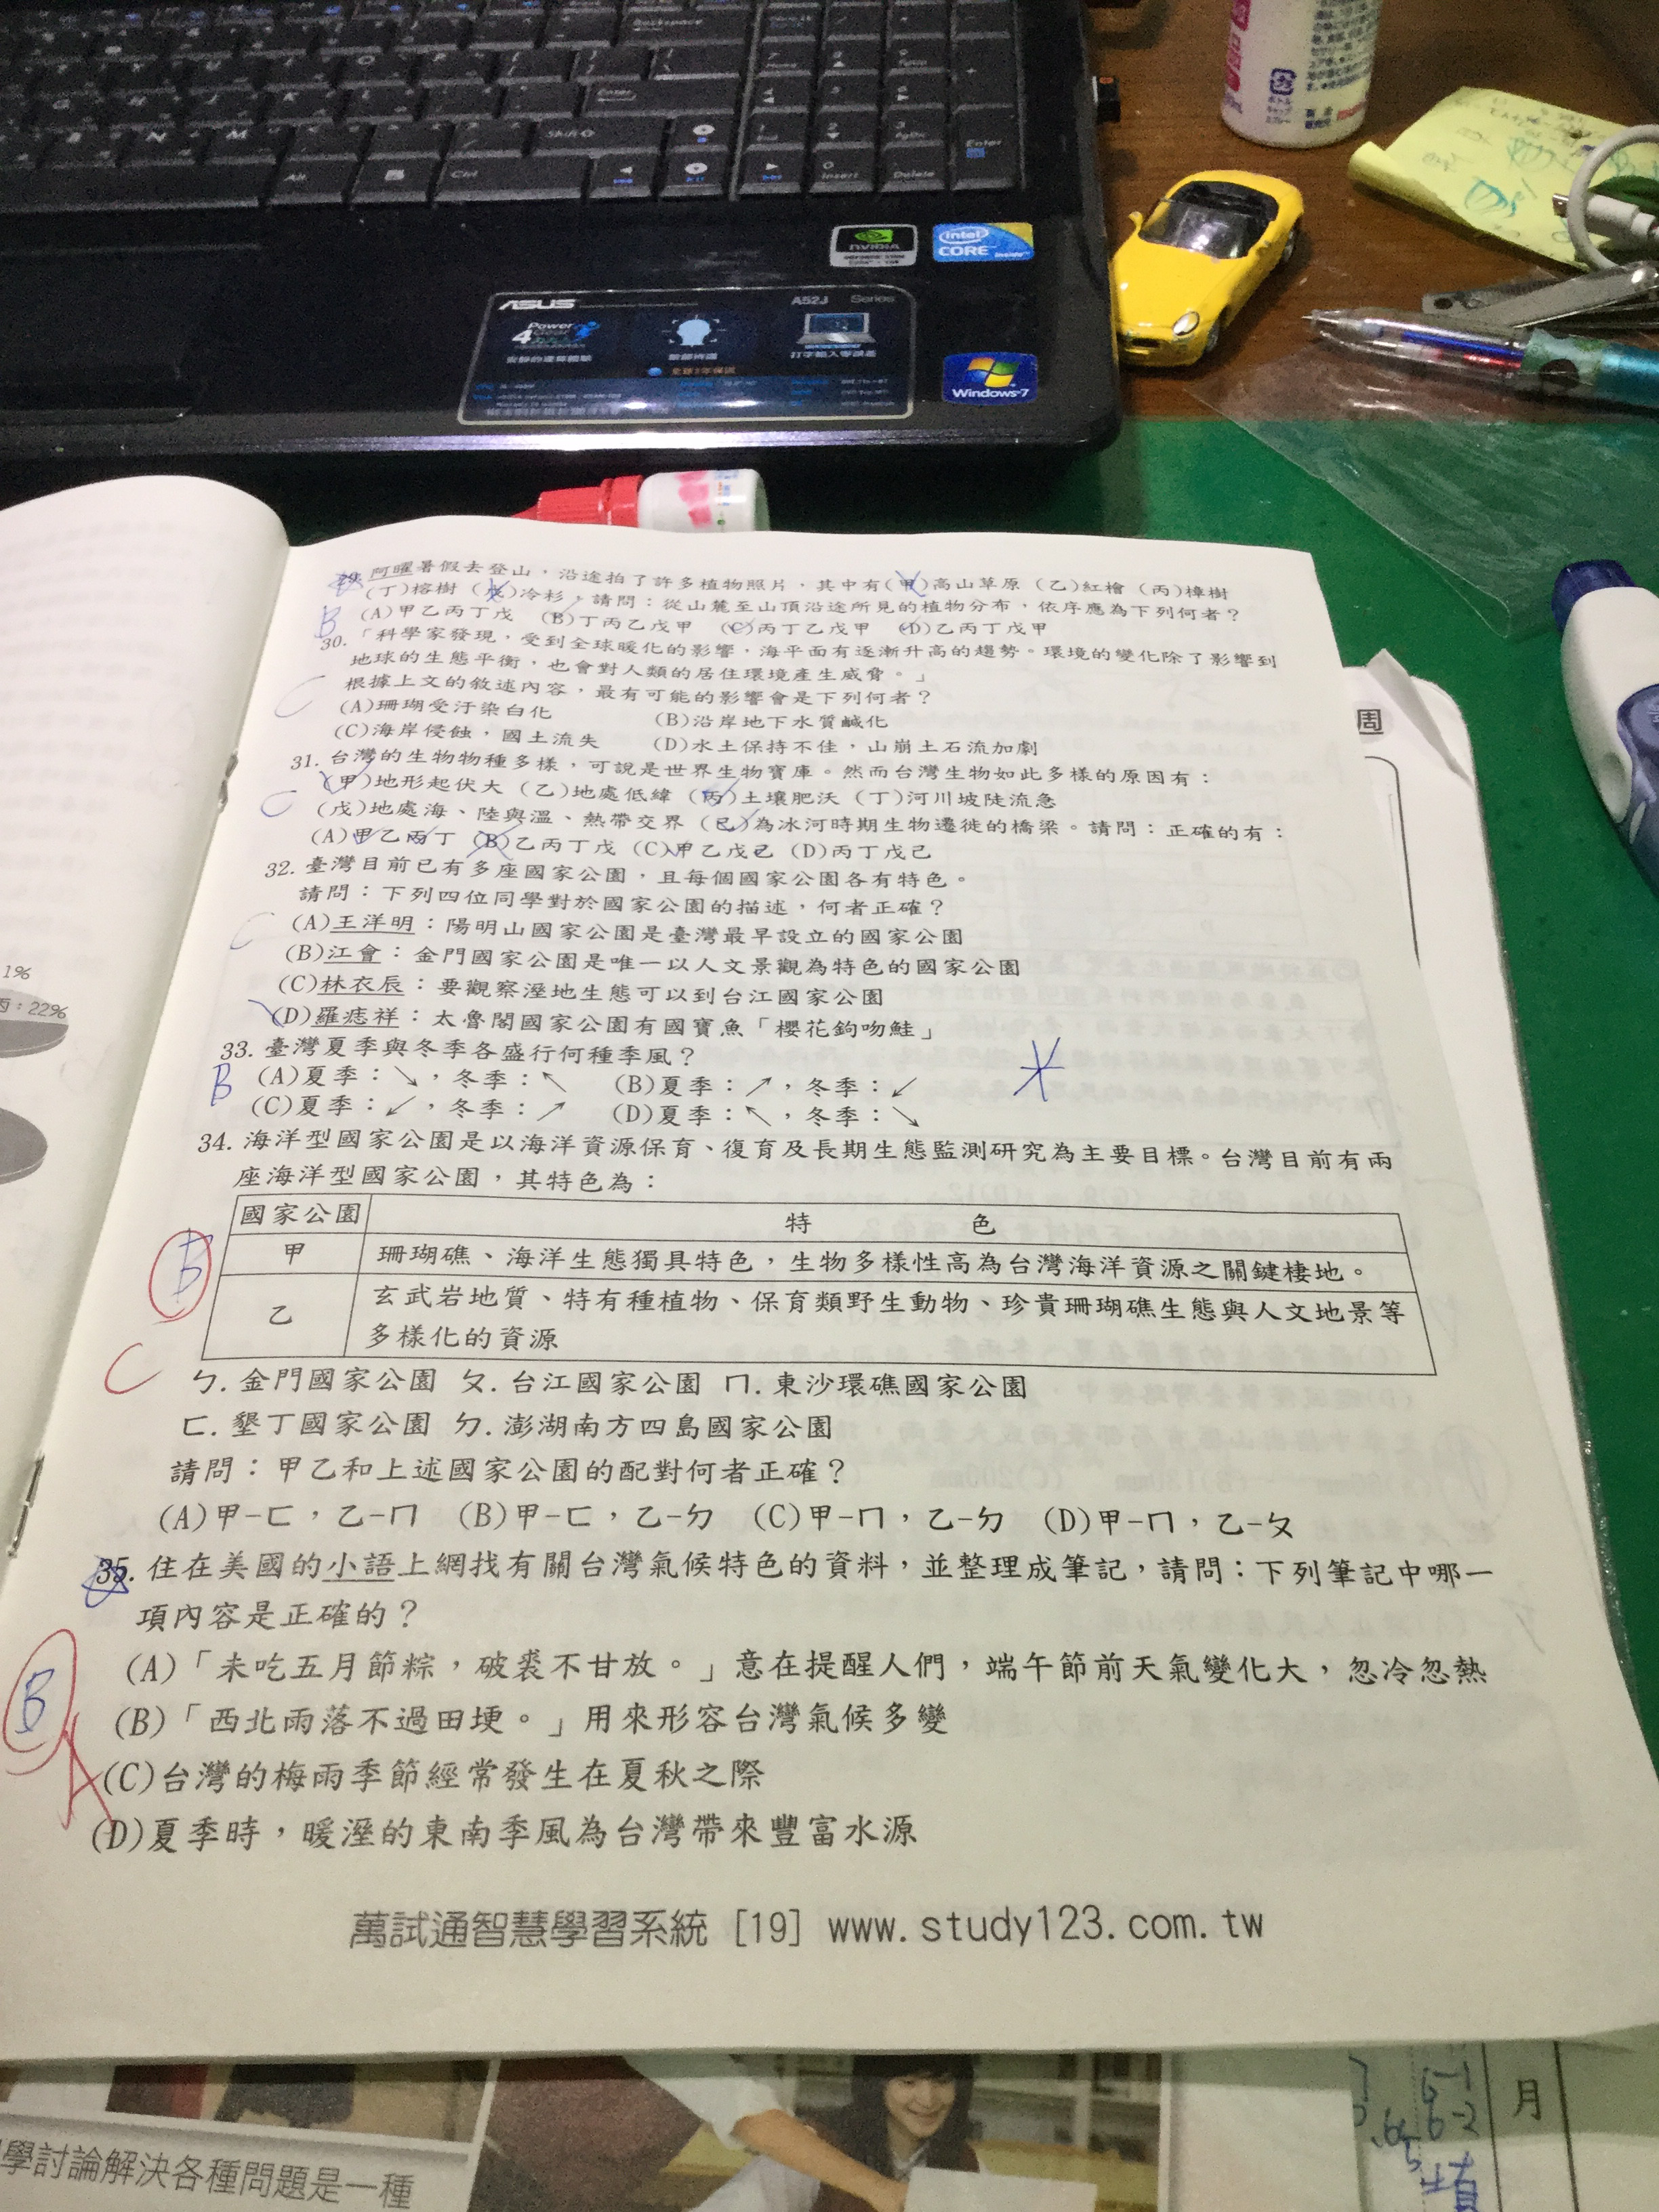 Backspace
Enter
Shift
Alt
Ctrl
Insert
Delete
Enter
NVIDIA
intel
CORE
inside
ASUS
A52J Series
Power
4 Gear
打字輸入零誤差
Windows 7
29. 阿曜暑假去登山，沿途拍了許多植物照片，其中有(甲)高山草原 (乙)紅檜 (丙)樟樹
(丁)榕樹 (戊)冷杉，請問：從山麓至山頂沿途所見的植物分布，依序應為下列何者？
B
(A)甲乙丙丁戊 (B)丁丙乙戊甲 (C)丙丁乙戊甲 (D)乙丙丁戊甲
30.「科學家發現，受到全球暖化的影響，海平面有逐漸升高的趨勢。環境的變化除了影響到
地球的生態平衡，也會對人類的居住環境產生威脅。」
根據上文的敘述內容，最有可能的影響會是下列何者？
C
(A)珊瑚受汙染白化 (B)沿岸地下水質鹹化
(C)海岸侵蝕，國土流失 (D)水土保持不佳，山崩土石流加劇
31. 台灣的生物物種多樣，可說是世界生物寶庫。然而台灣生物如此多樣的原因有：
(甲)地形起伏大 (乙)地處低緯 (丙)土壤肥沃 (丁)河川坡陡流急
C
(戊)地處海、陸與溫、熱帶交界 (己)為冰河時期生物遷徙的橋梁。請問：正確的有：
(A)甲乙丙丁 (B)乙丙丁戊 (C)甲乙戊己 (D)丙丁戊己
32. 臺灣目前已有多座國家公園，且每個國家公園各有特色。
請問：下列四位同學對於國家公園的描述，何者正確？
C
(A)王洋明：陽明山國家公園是臺灣最早設立的國家公園
(B)江會：金門國家公園是唯一以人文景觀為特色的國家公園
(C)林衣辰：要觀察溼地生態可以到台江國家公園
(D)羅痣祥：太魯閣國家公園有國寶魚「櫻花鉤吻鮭」
33. 臺灣夏季與冬季各盛行何種季風？
B
(A)夏季：↘，冬季：↖ (B)夏季：↗，冬季：↙
(C)夏季：↙，冬季：↗ (D)夏季：↖，冬季：↘
34. 海洋型國家公園是以海洋資源保育、復育及長期生態監測研究為主要目標。台灣目前有兩
座海洋型國家公園，其特色為：
國家公園 特 色
甲 珊瑚礁、海洋生態獨具特色，生物多樣性高為台灣海洋資源之關鍵棲地。
B
乙 玄武岩地質、特有種植物、保育類野生動物、珍貴珊瑚礁生態與人文地景等
多樣化的資源
C
ㄅ. 金門國家公園 ㄆ. 台江國家公園 ㄇ. 東沙環礁國家公園
ㄈ. 墾丁國家公園 ㄉ. 澎湖南方四島國家公園
請問：甲乙和上述國家公園的配對何者正確？
(A)甲-ㄈ，乙-ㄇ (B)甲-ㄈ，乙-ㄉ (C)甲-ㄇ，乙-ㄉ (D)甲-ㄇ，乙-ㄆ
35. 住在美國的小語上網找有關台灣氣候特色的資料，並整理成筆記，請問：下列筆記中哪一
項內容是正確的？
(A)「未吃五月節粽，破裘不甘放。」意在提醒人們，端午節前天氣變化大，忽冷忽熱
B
(B)「西北雨落不過田埂。」用來形容台灣氣候多變
A
(C)台灣的梅雨季節經常發生在夏秋之際
(D)夏季時，暖溼的東南季風為台灣帶來豐富水源
萬試通智慧學習系統 [19] www.study123.com.tw
周
1%
丙：22%
學討論解決各種問題是一種
6-1
6-2
月